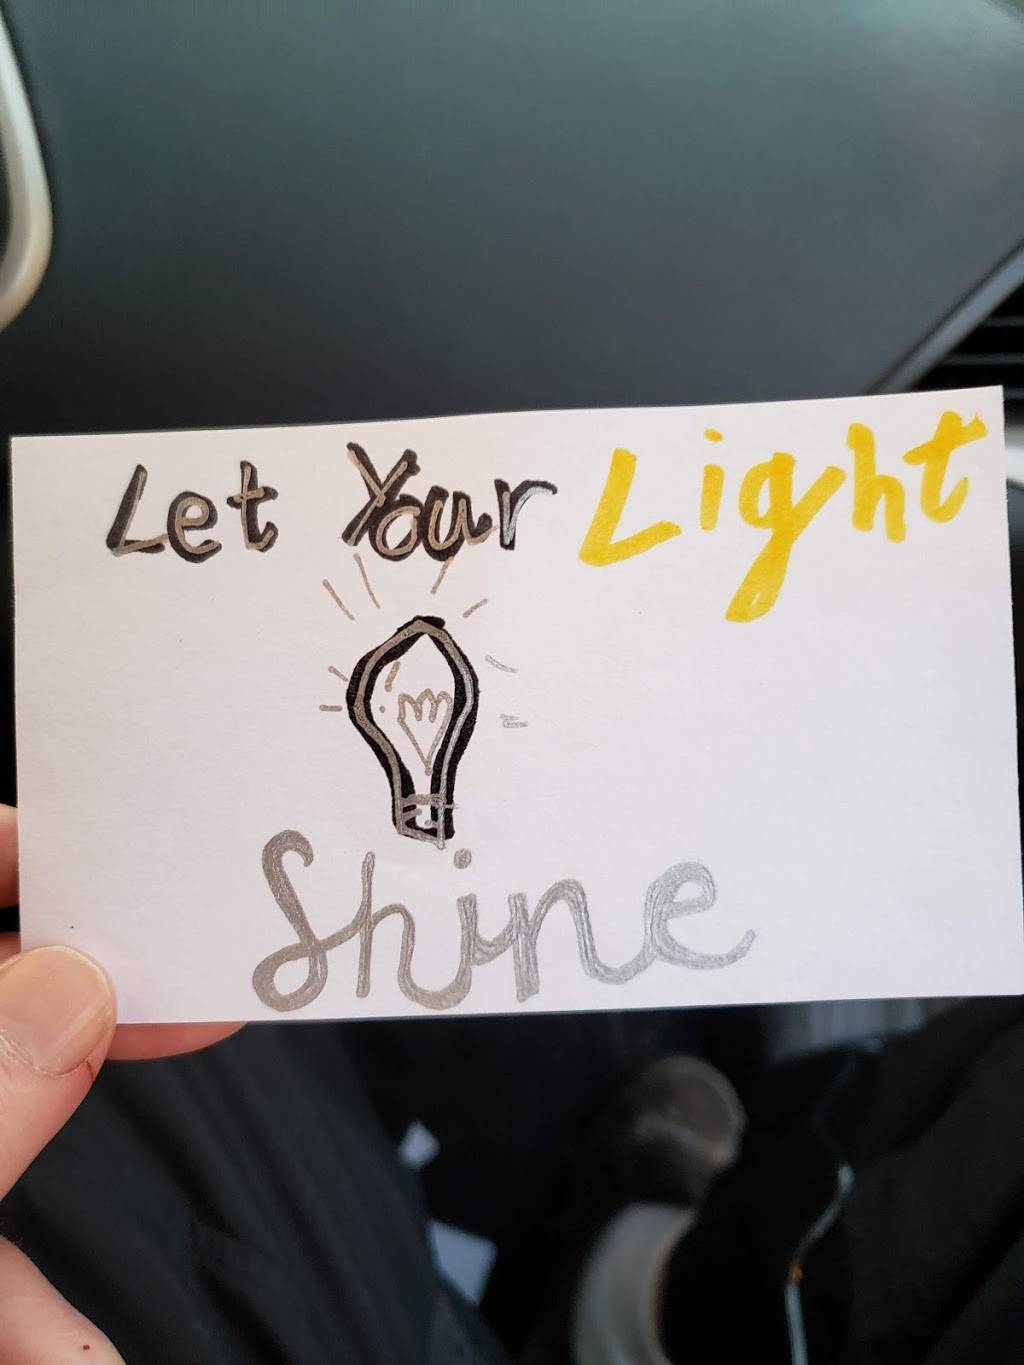 Let Your Light
Shine